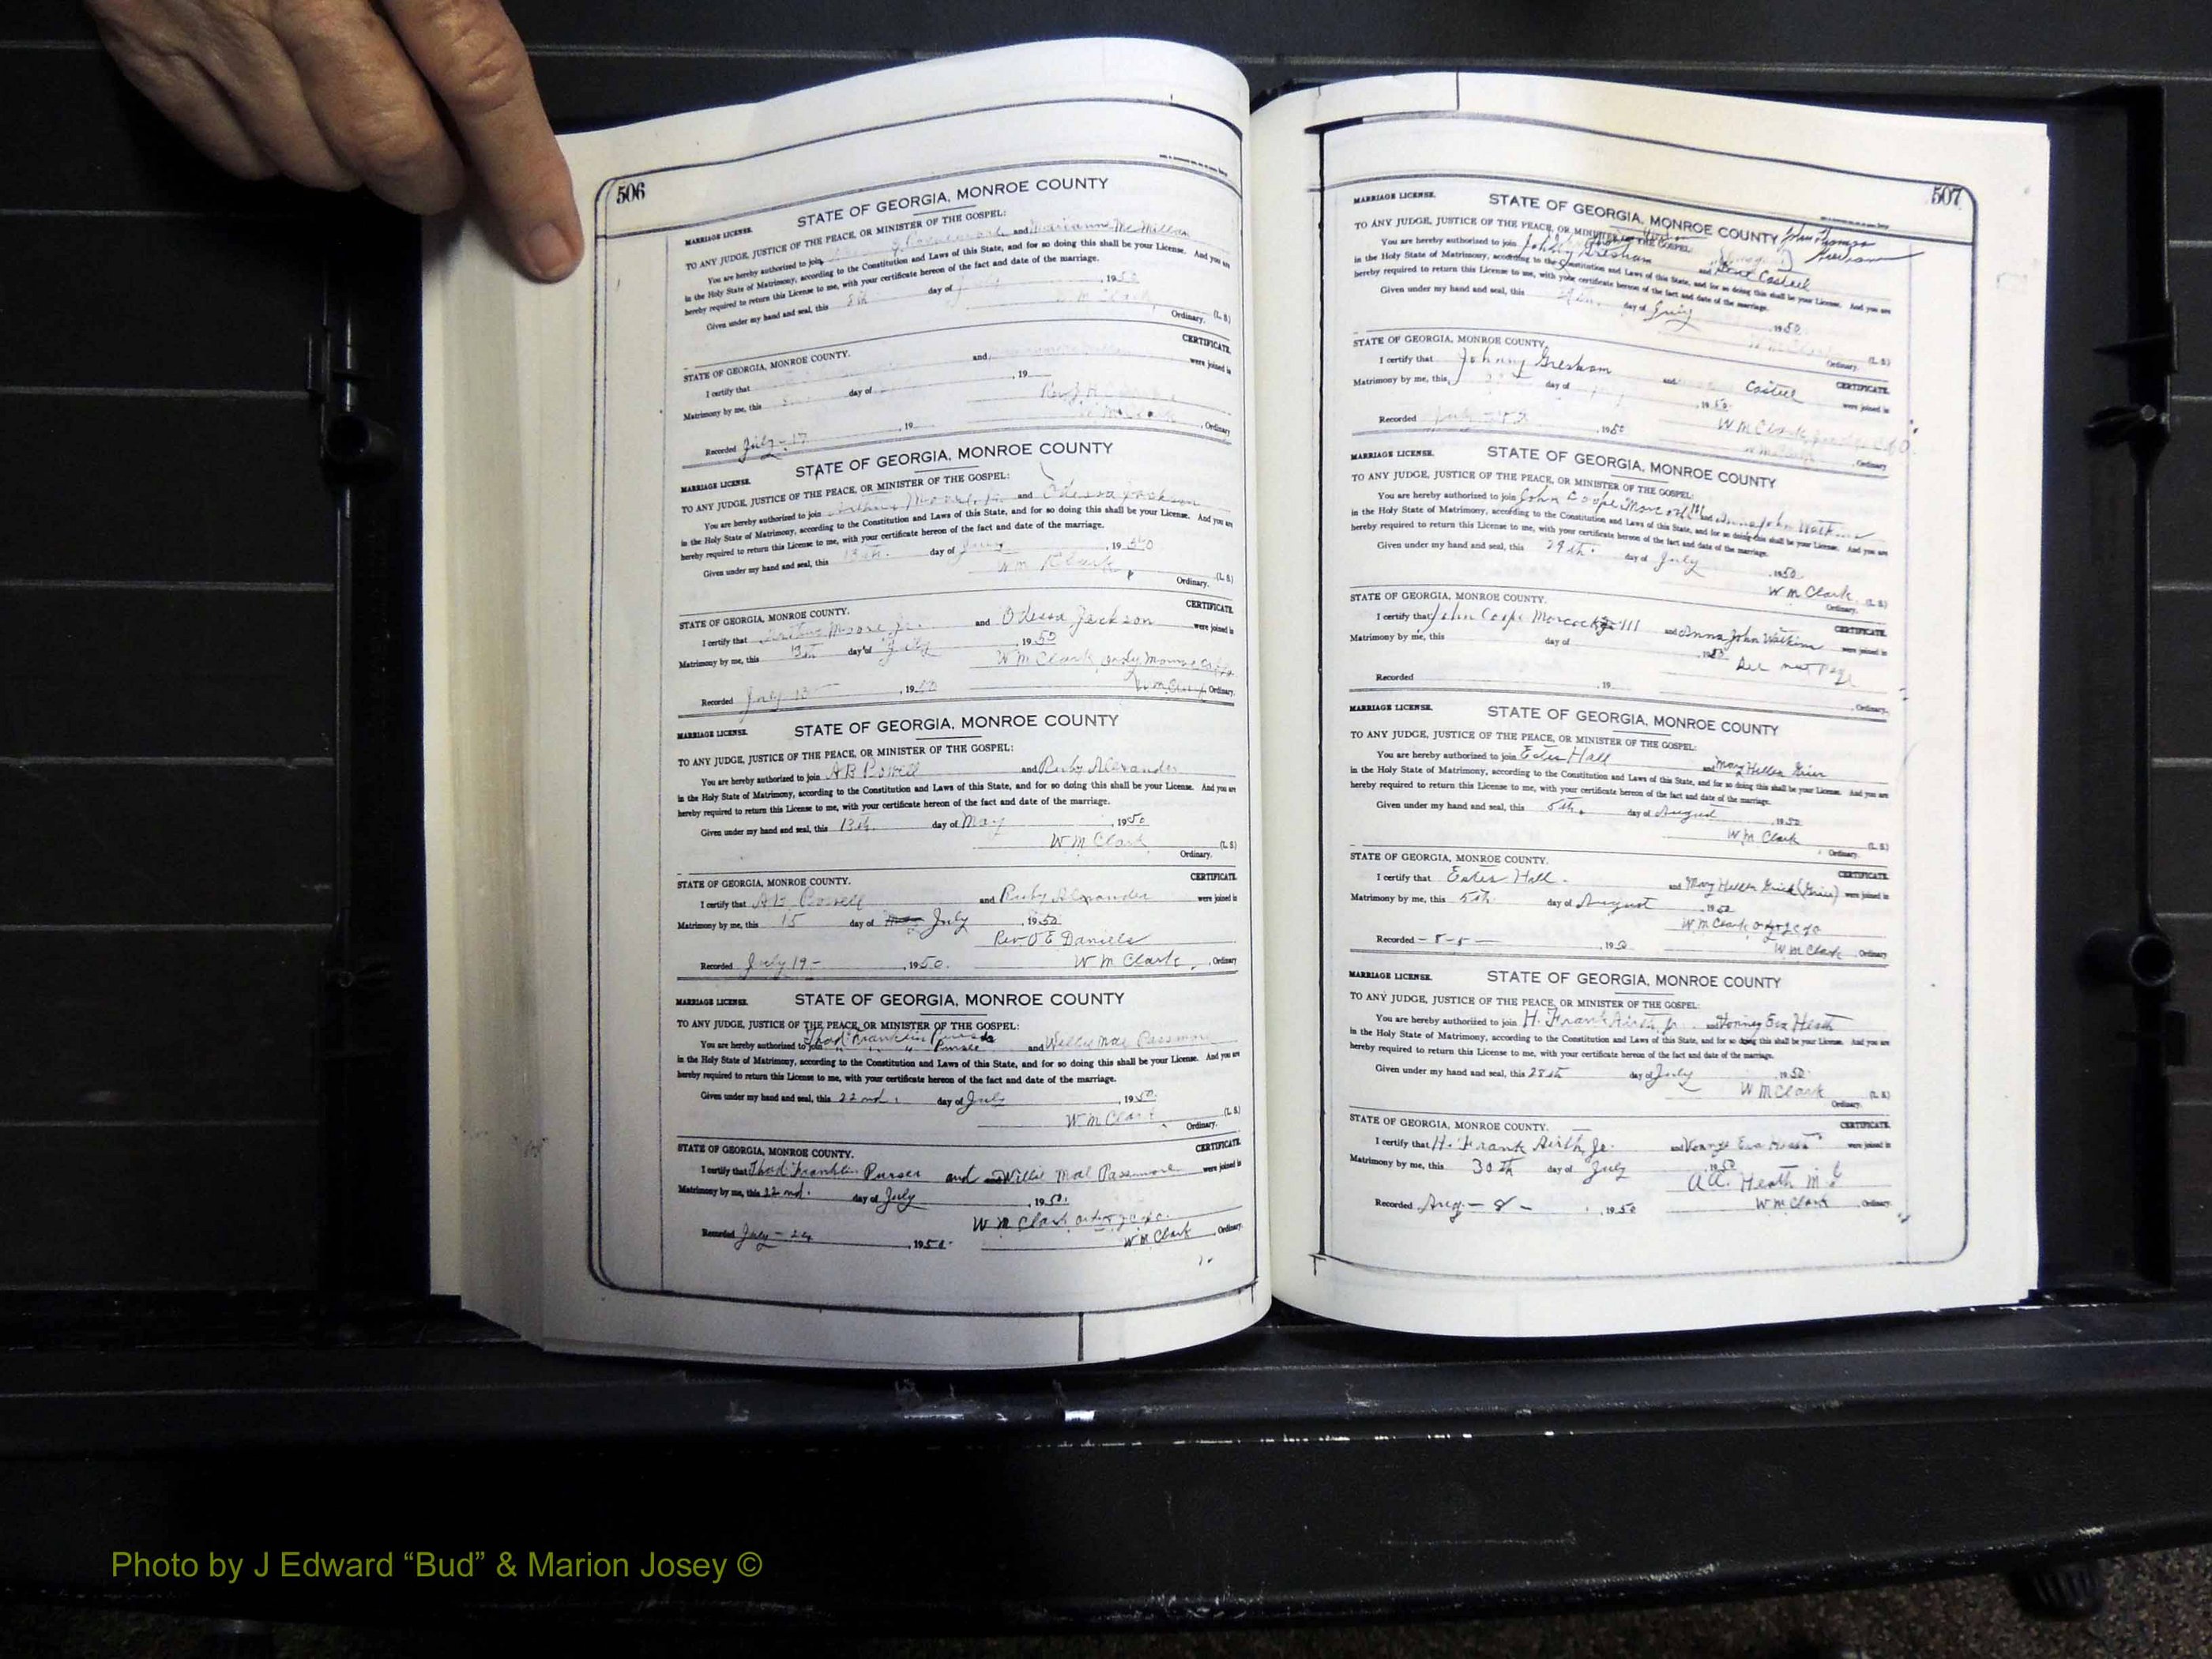 506
MARRIAGE LICENSE. STATE OF GEORGIA, MONROE COUNTY
TO ANY JUDGE, JUSTICE OF THE PEACE, OR MINISTER OF THE GOSPEL:
You are hereby authorized to join and Marianne McMillan
in the Holy State of Matrimony, according to the Constitution and Laws of this State, and for so doing this shall be your License. And you are
hereby required to return this License to me, with your certificate hereon of the fact and date of the marriage.
Given under my hand and seal, this 8th day of 1950
W M Clark (L. S.)
Ordinary.
STATE OF GEORGIA, MONROE COUNTY. CERTIFICATE.
I certify that and were joined in
Matrimony by me, this day of , 19
Recorded July-17 , 19 , Ordinary
STATE OF GEORGIA, MONROE COUNTY
MARRIAGE LICENSE.
TO ANY JUDGE, JUSTICE OF THE PEACE, OR MINISTER OF THE GOSPEL:
You are hereby authorized to join Arthur Moore, Jr. and Odessa Jackson
in the Holy State of Matrimony, according to the Constitution and Laws of this State, and for so doing this shall be your License. And you are
hereby required to return this License to me, with your certificate hereon of the fact and date of the marriage.
Given under my hand and seal, this 13th. day of July , 1950
Wm Clark (L. S.)
Ordinary.
STATE OF GEORGIA, MONROE COUNTY. CERTIFICATE.
I certify that Arthur Moore Jr. and Odessa Jackson were joined in
Matrimony by me, this 13th day of July 1950
W M Clark ordy Monroe
Recorded July 13 , 1950 Wm Clark, Ordinary.
MARRIAGE LICENSE. STATE OF GEORGIA, MONROE COUNTY
TO ANY JUDGE, JUSTICE OF THE PEACE, OR MINISTER OF THE GOSPEL:
You are hereby authorized to join A B Powell and Ruby Alexander
in the Holy State of Matrimony, according to the Constitution and Laws of this State, and for so doing this shall be your License. And you are
hereby required to return this License to me, with your certificate hereon of the fact and date of the marriage.
Given under my hand and seal, this 13th. day of May , 1950
W M Clark (L. S.)
Ordinary.
STATE OF GEORGIA, MONROE COUNTY. CERTIFICATE.
I certify that A B Powell and Ruby Alexander were joined in
Matrimony by me, this 15 day of July , 1950
Rev O E Daniels
Recorded July 19- , 1950. W M Clark , Ordinary
MARRIAGE LICENSE. STATE OF GEORGIA, MONROE COUNTY
TO ANY JUDGE, JUSTICE OF THE PEACE, OR MINISTER OF THE GOSPEL:
You are hereby authorized to join Thad Franklin and Willie Mae Passmore
in the Holy State of Matrimony, according to the Constitution and Laws of this State, and for so doing this shall be your License. And you are
hereby required to return this License to me, with your certificate hereon of the fact and date of the marriage.
Given under my hand and seal, this 22nd. day of July , 1950.
W M Clark (L. S.)
Ordinary.
STATE OF GEORGIA, MONROE COUNTY. CERTIFICATE.
I certify that Thad Franklin Purser and and Willie Mae Passmore were joined in
Matrimony by me, this 22nd. day of July , 1950.
W M Clark
Recorded July-24 , 1950. W M Clark , Ordinary.
507
MARRIAGE LICENSE. STATE OF GEORGIA, MONROE COUNTY John Thomas
TO ANY JUDGE, JUSTICE OF THE PEACE, OR MINISTER OF THE GOSPEL: Gresham
You are hereby authorized to join Johnny Gresham and Casteel
in the Holy State of Matrimony, according to the Constitution and Laws of this State, and for so doing this shall be your License. And you are
hereby required to return this License to me, with your certificate hereon of the fact and date of the marriage.
Given under my hand and seal, this day of July , 1950.
W M Clark (L. S.)
Ordinary.
STATE OF GEORGIA, MONROE COUNTY. CERTIFICATE.
I certify that Johnny Gresham and Casteel were joined in
Matrimony by me, this day of , 1950.
W M Clark
Recorded July , 1950 , Ordinary
MARRIAGE LICENSE. STATE OF GEORGIA, MONROE COUNTY
TO ANY JUDGE, JUSTICE OF THE PEACE, OR MINISTER OF THE GOSPEL:
You are hereby authorized to join John Cope Morcock III and Anna John Watkins
in the Holy State of Matrimony, according to the Constitution and Laws of this State, and for so doing this shall be your License. And you are
hereby required to return this License to me, with your certificate hereon of the fact and date of the marriage.
Given under my hand and seal, this 29th. day of July , 1950
W M Clark (L. S.)
Ordinary.
STATE OF GEORGIA, MONROE COUNTY. CERTIFICATE.
I certify that John Cope Morcock III and Anna John Watkins were joined in
Matrimony by me, this day of , 1950
See next Page
Recorded , 19 , Ordinary.
MARRIAGE LICENSE. STATE OF GEORGIA, MONROE COUNTY
TO ANY JUDGE, JUSTICE OF THE PEACE, OR MINISTER OF THE GOSPEL:
You are hereby authorized to join Estes Hall and Mary Hellen Grier
in the Holy State of Matrimony, according to the Constitution and Laws of this State, and for so doing this shall be your License. And you are
hereby required to return this License to me, with your certificate hereon of the fact and date of the marriage.
Given under my hand and seal, this 5th. day of August , 1950
W M Clark (L. S.)
Ordinary.
STATE OF GEORGIA, MONROE COUNTY. CERTIFICATE.
I certify that Estes Hall. and Mary Hellen (Grier) were joined in
Matrimony by me, this 5th day of August , 1950
W M Clark
Recorded -8-5- , 1950 W M Clark , Ordinary
MARRIAGE LICENSE. STATE OF GEORGIA, MONROE COUNTY
TO ANY JUDGE, JUSTICE OF THE PEACE, OR MINISTER OF THE GOSPEL:
You are hereby authorized to join H. Frank Airth Jr. and Eva Heath
in the Holy State of Matrimony, according to the Constitution and Laws of this State, and for so doing this shall be your License. And you are
hereby required to return this License to me, with your certificate hereon of the fact and date of the marriage.
Given under my hand and seal, this 28th day of July , 1950.
W M Clark (L. S.)
Ordinary.
STATE OF GEORGIA, MONROE COUNTY. CERTIFICATE.
I certify that H. Frank Airth Jr. and Eva Heath were joined in
Matrimony by me, this 30th day of July , 1950
A.A. Heath M.G
Recorded Aug-8- , 1950 W M Clark , Ordinary.
Photo by J Edward “Bud” & Marion Josey ©